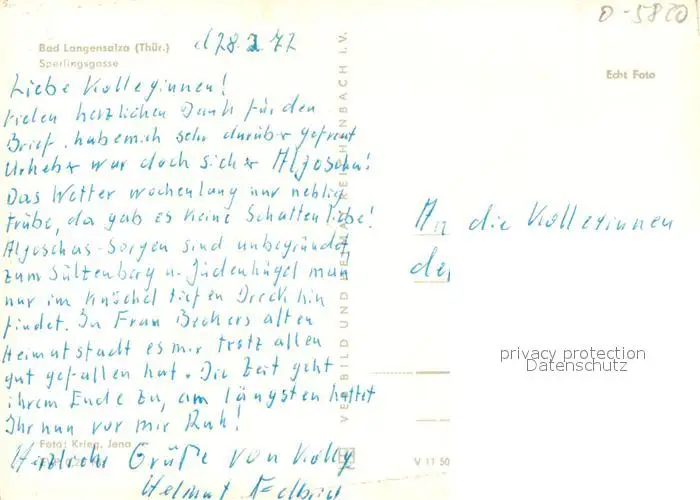 0-5820
Bad Langensalza (Thür.)
Sperlingsgasse
d 28. 2. 72
Echt Foto
Liebe Kolleginnen!
Vielen herzlichen Dank für den
Brief, habe mich sehr darüber gefreut
Urheber war doch sicher Aljoscha!
Das Wetter wochenlang nur neblig
trübe, da gab es keine Schatten liebe!
Aljoschas-Sorgen sind unbegründet,
zum Sülzenberg u. Judenhügel man
nur im Knöchel tiefen Dreck hin
findet. In Frau Beckers alten
Heimatstadt es mir trotz allen
gut gefallen hat. Die Zeit geht
ihrem Ende zu, am längsten hattet
Ihr nun vor mir Ruh!
Foto: Krieg, Jena
Herzliche Grüße von Kolly
Helmut
An die Kolleginnen
de
privacy protection
Datenschutz
VERLAG BILD UND HEIMAT REICHENBACH I. V.
V 11 50